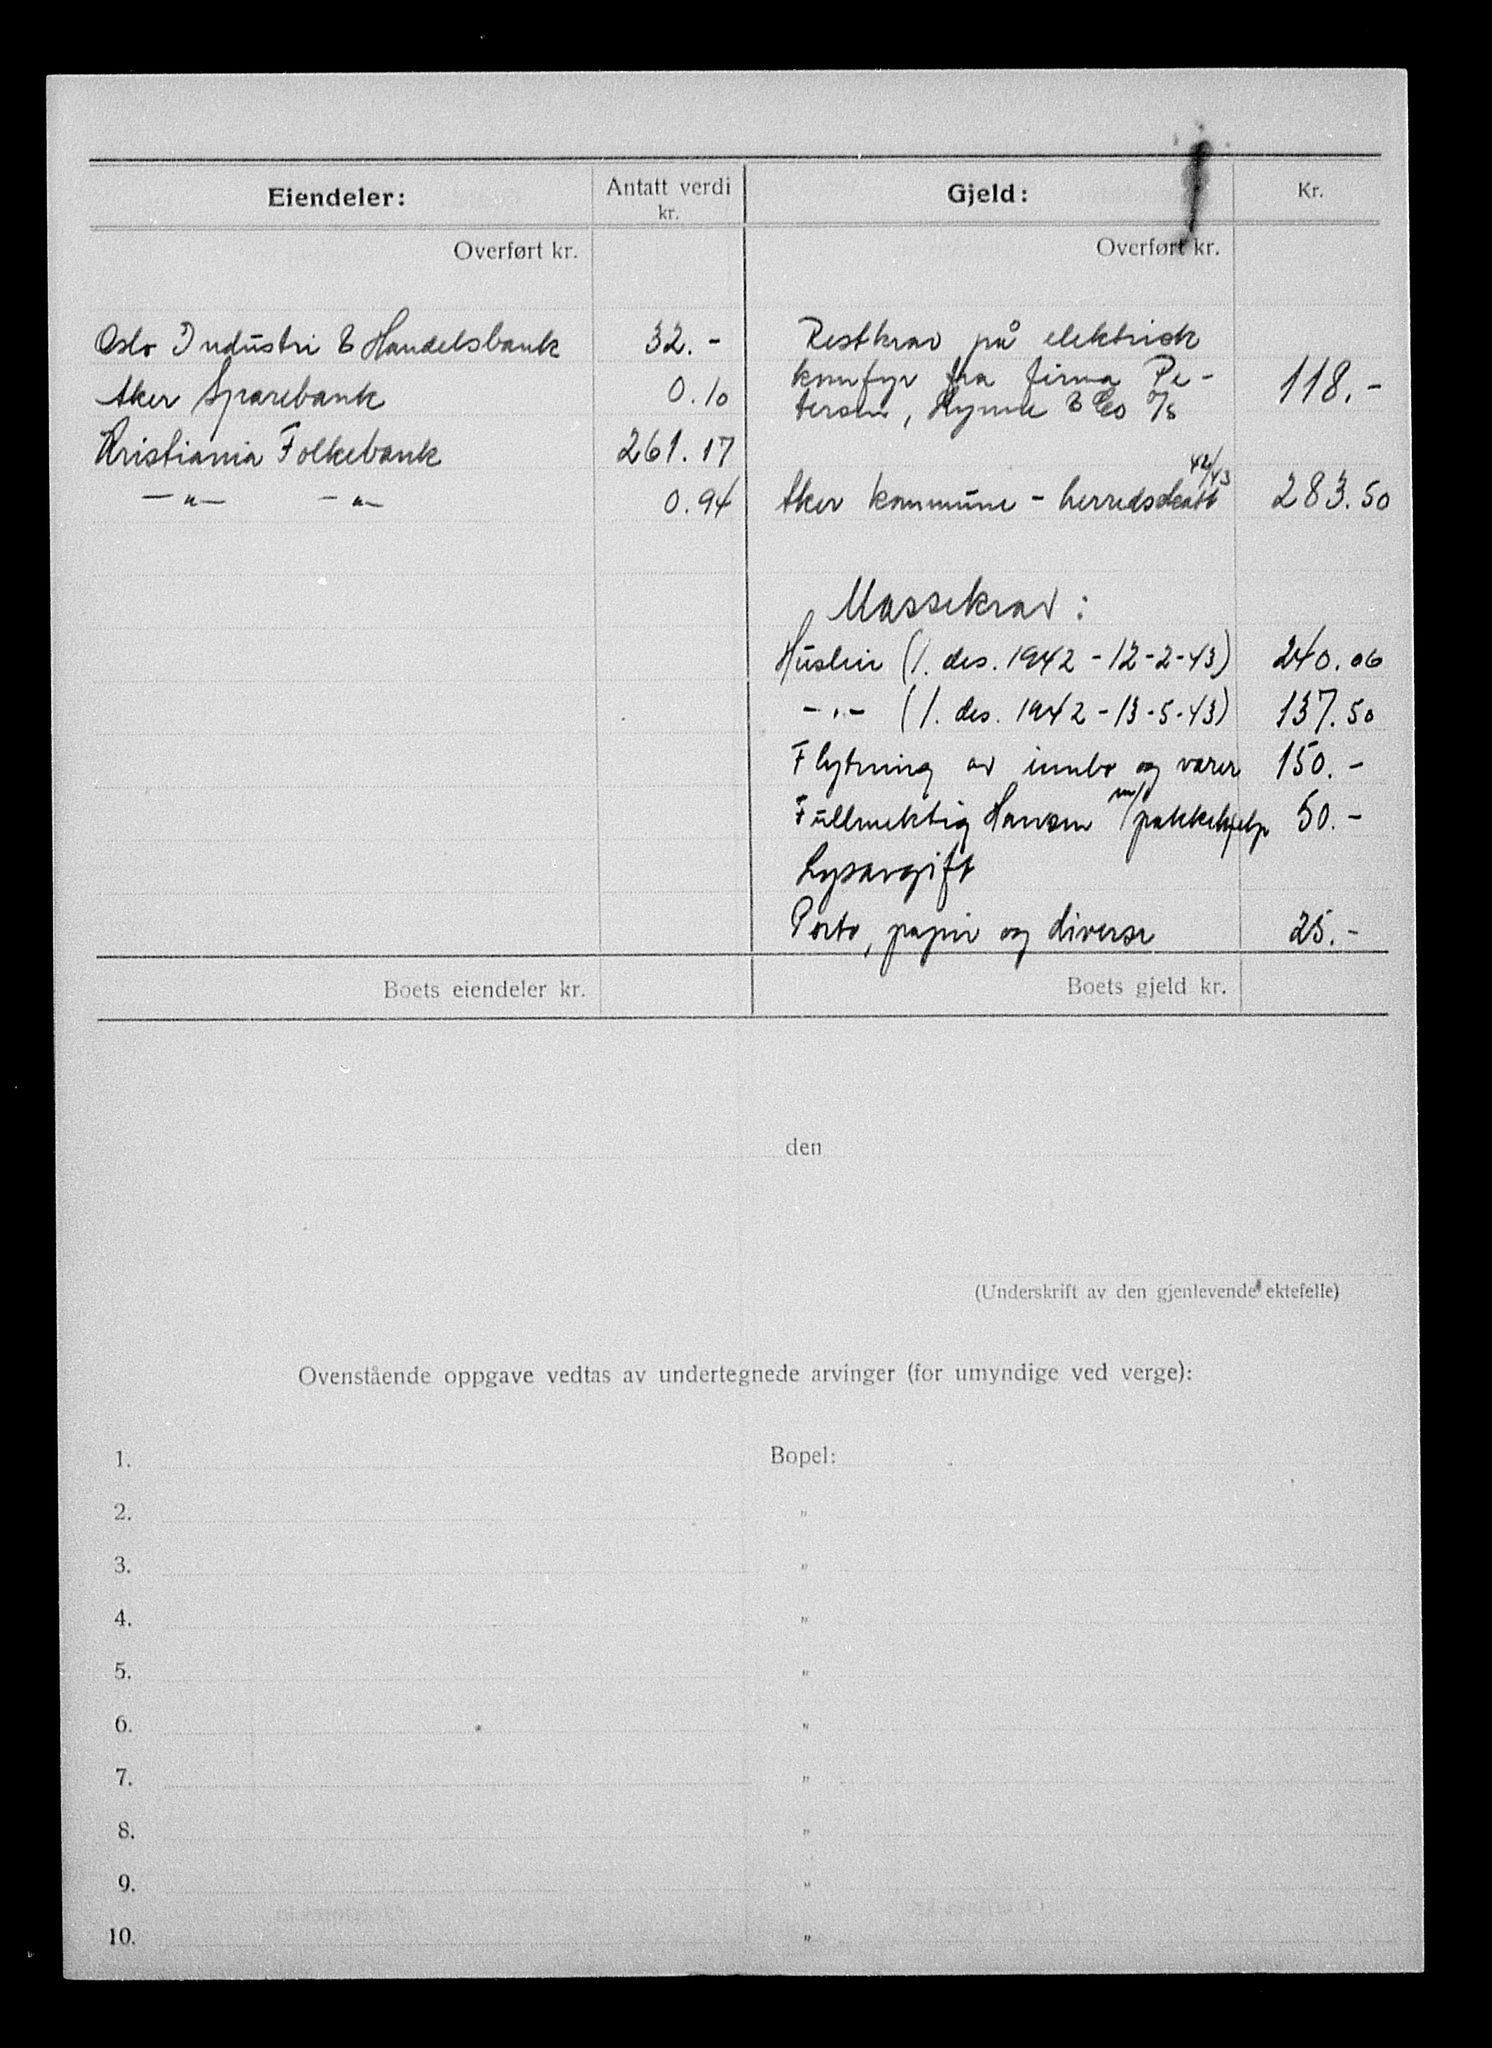 Eiendeler:
Antatt verdi
kr.
Overført kr.
Oslo Industri & Handelsbank 32.-
Aker Sparebank 0.10
Kristiania Folkebank 261.17
—"— —"— 0.94
Boets eiendeler kr.
Gjeld:
Kr.
Overført kr.
Restkrav på elektrisk
komfyr fra firma Pe-
tersen, & Co 118.-
42/43
Aker kommune - herredsskatt 283.50
Massekrav:
Husleie (1. des. 1942 - 12-2-43) 240.06
-"- (1. des. 1942 - 13-5-43) 137.50
Flytning av innbo og varer 150.-
Fullmektig Hansen m/pakkehjelp 50.-
Lysavgift
Porto, papir og diverse 25.-
Boets gjeld kr.
den
(Underskrift av den gjenlevende ektefelle)
Ovenstående oppgave vedtas av undertegnede arvinger (for umyndige ved verge):
1. Bopel:
2. "
3. "
4. "
5. "
6. "
7. "
8. "
9. "
10. "